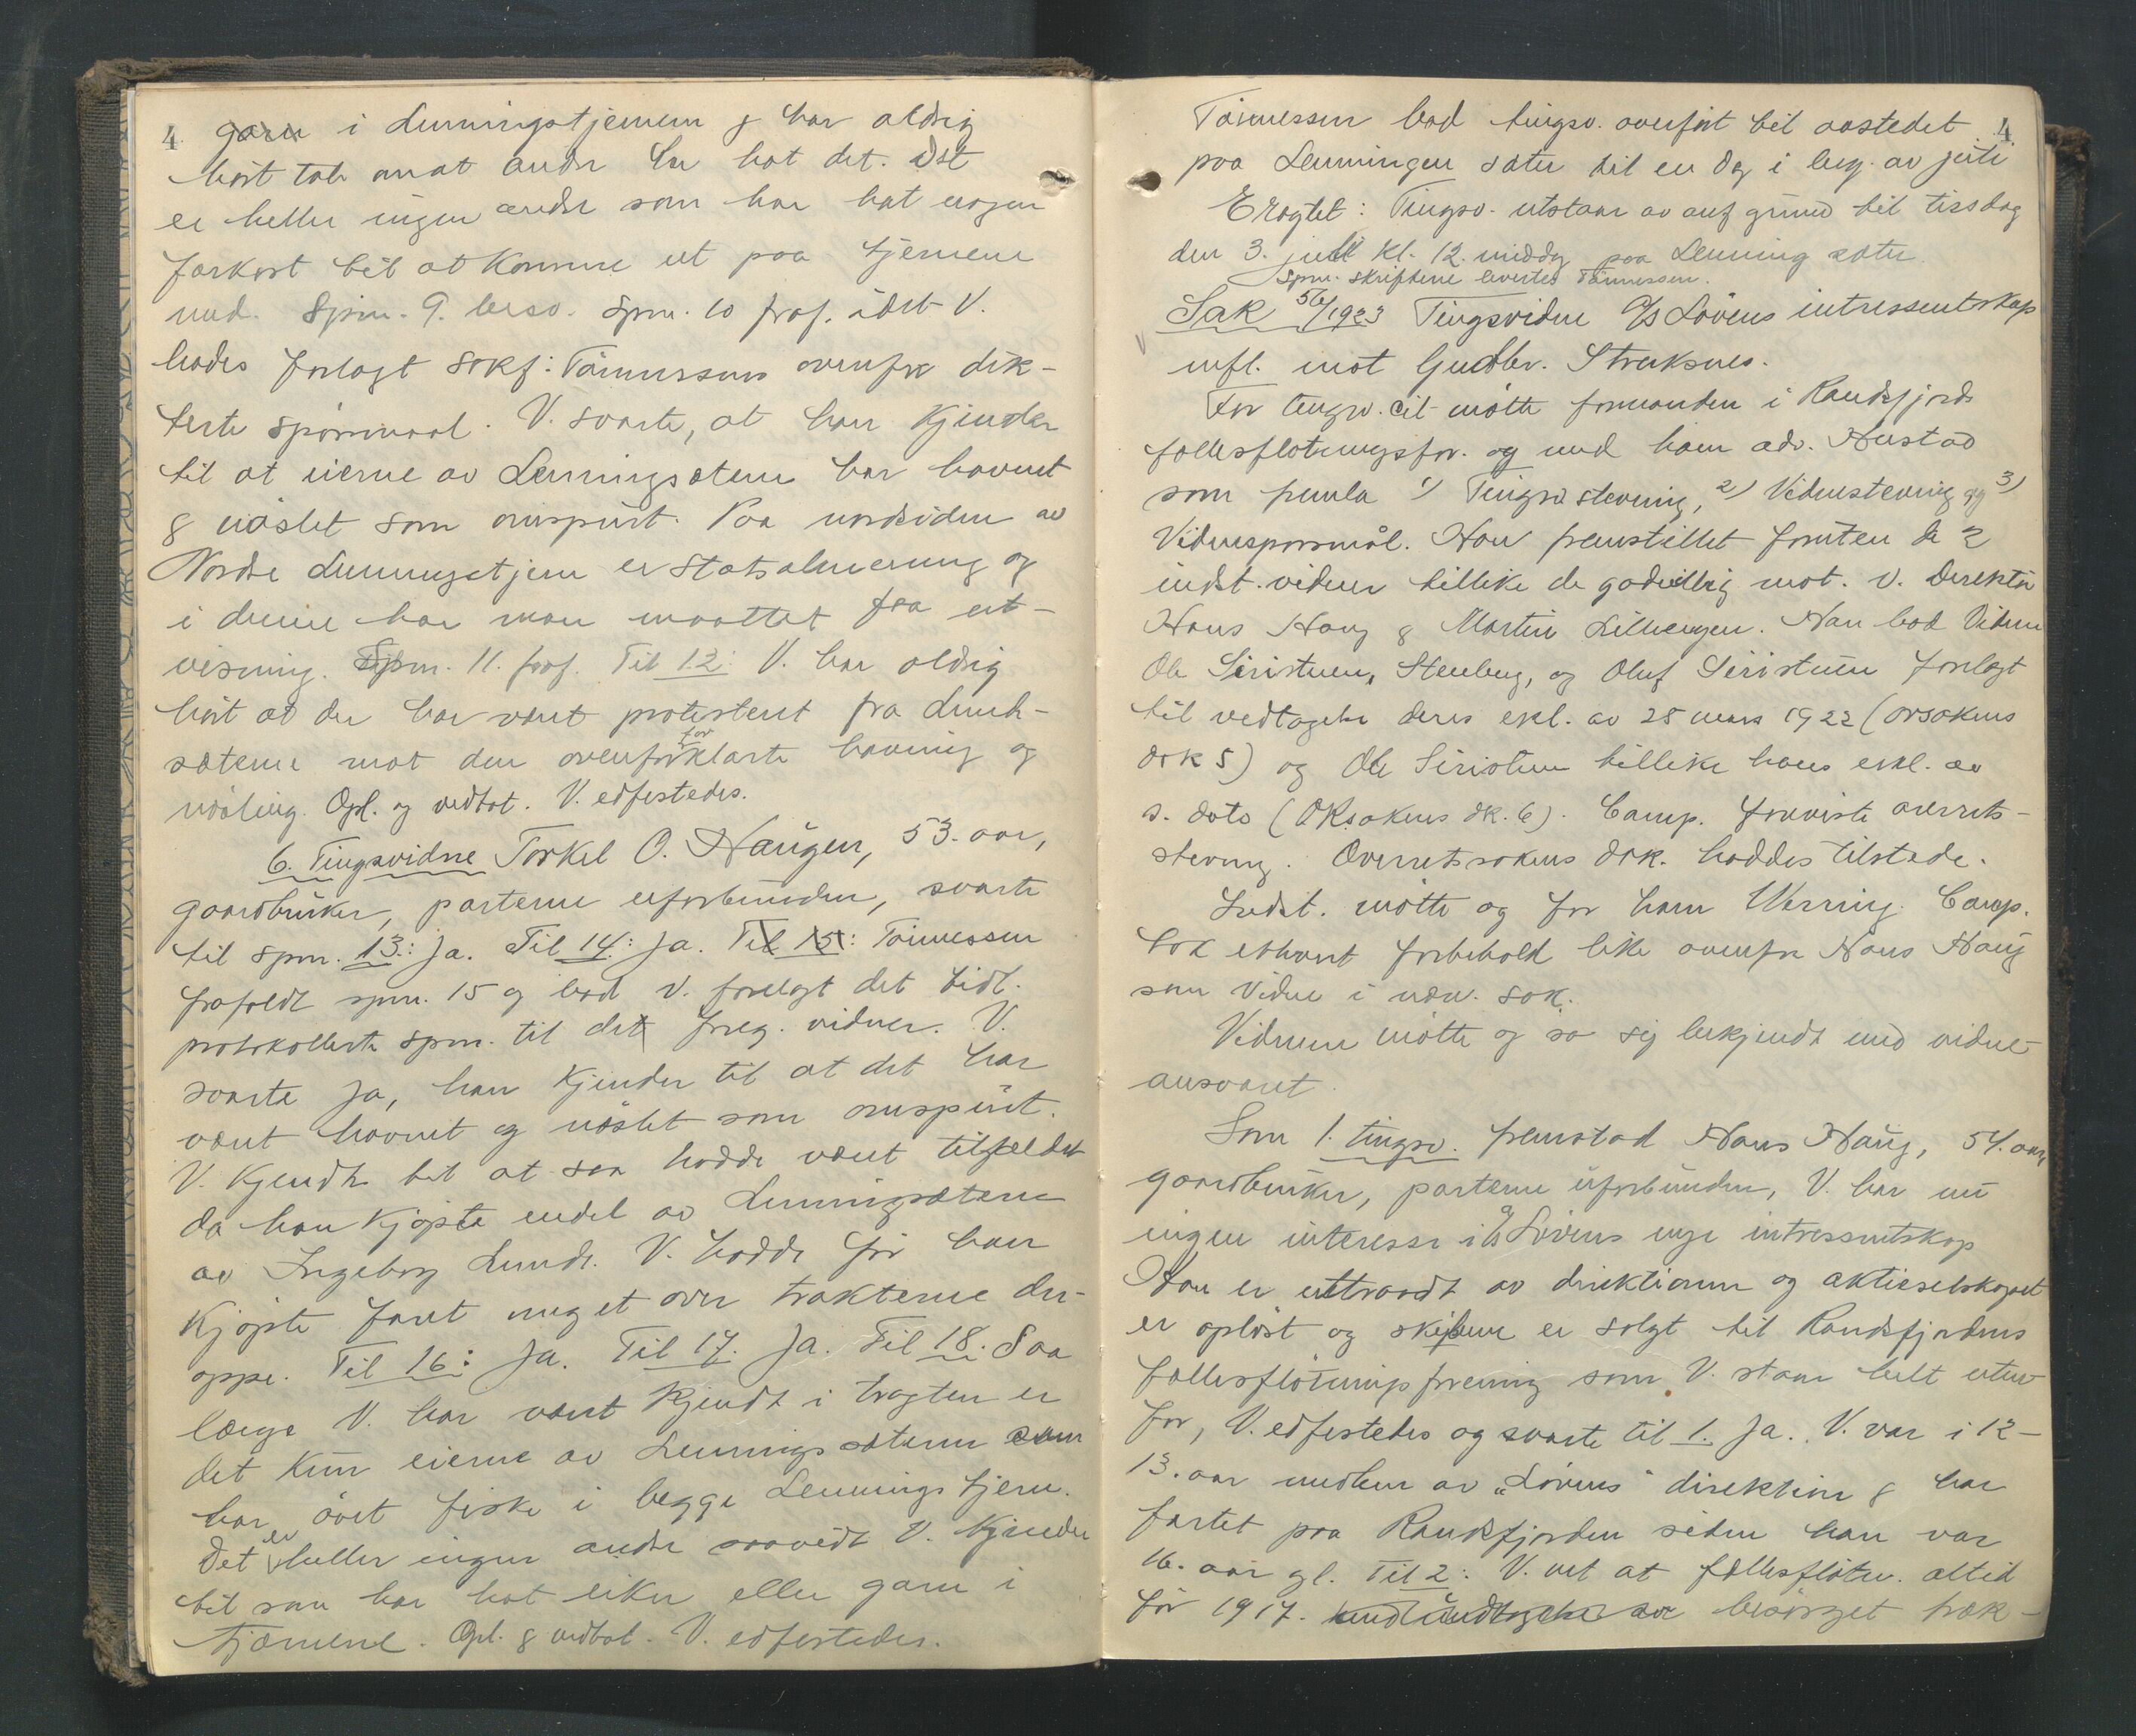 4 garn i Lenningstjernene & har aldrig
hört tale om at andre har hat det. Det
er heller ingen andre som har hat nogen
farkost til at komme ut paa tjernene
med. Spm. 9. besv. Spm. 10 fraf. idet V.
bades forlagt sakf: Tönnessens ovenfor dik-
terte spörsmaal. V. svarte, at han kjender
til at eierne av Lenningsætrene har havnet
& nöslet som omspurt. Paa nordsiden av
Nordre Lenningstjern er Statsalmenning og
i denne har man maattet faa ut-
visning. Spm. 11. fraf. Til 12: V. har aldrig
hört at der har været protestert fra Lunde-
sæterne mot den ovenforklarte havning og
nösling. Opl. og vedtat. V. edfestedes.
6. Tingsvidne Torkel O. Haugen, 53. aar,
gaardbruker, parterne uforbunden, svarte
til spm. 13: Ja. Til 14: Ja. Til 15: Tönnessen
frafaldt spm. 15 og bad V. forelagt det tidl.
protokollerte spm. til det foreg. vidner. V.
svarte Ja, han kjender til at det har
været havnet og nöslet som omspurt.
V. kjendte til at saa hadde været tilfældet
da han kjöpte endel av Lenningsætrene
av Ingeborg Lunde. V. hadde för han
kjöpte faret meget over trakterne der-
oppe. Til 16: Ja. Til 17. Ja. Til 18. Saa
længe V. har været kjendt i tragten er
det kun eierne av Lenningssæterne som
har övet fiske i begge Lennings tjern.
Det er heller ingen andre saavidt V. kjender
til som har hat eiker eller garn i
tjernene. Opl. & vedtat. V. edfestedes.
Tönnessen bad tingsv. overfört til aastedet 4
paa Lenningen sæter til en dag i beg. av juli
Eragtet: Tingsv. utstaar av anf grund til tirsdag
den 3. juli kl. 12. middag paa Lenning sæter.
Spm. skriftene levertes Tönnessen.
Sak 56/1923 Tingsvidne A/S Lövens intressentskap
mfl. mot Gudbr. Straksnes.
For tingsv. cit. mötte formanden i Randsfjords
fællesflötningsfor. og med ham adv. Hustad
som fremla 1) Tingsv. stevning, 2) Vidnestevning og 3)
Vidnespørsmål. Han fremstillet foruten de 2
indst. vidner tillike de godvillig möt. v. direktör
Hans Haug & Martin Lillevengen. Han bad Vidnene
Ole Siristuen, Stenberg, og Oluf Siristuen forelagt
til vedtagelse deres erkl. av 28 mars 1922 (orsakens
dok 5) og Ole Siristuen tillike hans erkl. av
s. dato (ORsakens dk. 6). Comp. foreviste overrets-
stevning. Overretssakens dok. haddes tilstede.
Indst. mötte og for ham Werring. Comp.
tok ethvert forbehold like overfor Hans Haug
som Vidne i nærv. sak.
Vidnene mötte og sa sig bekjendt med vidne-
ansvaret.
Som 1. tingsv. fremstod Hans Haug, 54. aar,
gaardbruker, parterne uforbunden, V. har nu
ingen interesse i A/S Lövens nye intressentskap
Han er uttraadt av direktionen og aktieselskapet
er oplöst og skibene er solgt til Randsfjordens
fællesflötningsforening som V. staar helt uten-
for, V. edfestedes og svarte til 1. Ja. V. var i 12-
13. aar medlem av "Lövens" direktion & har
fartet paa Randsfjorden siden han var
16. aar gl. Til 2: V. vet at fællesflötn. altid
för 1917. besörget træk-